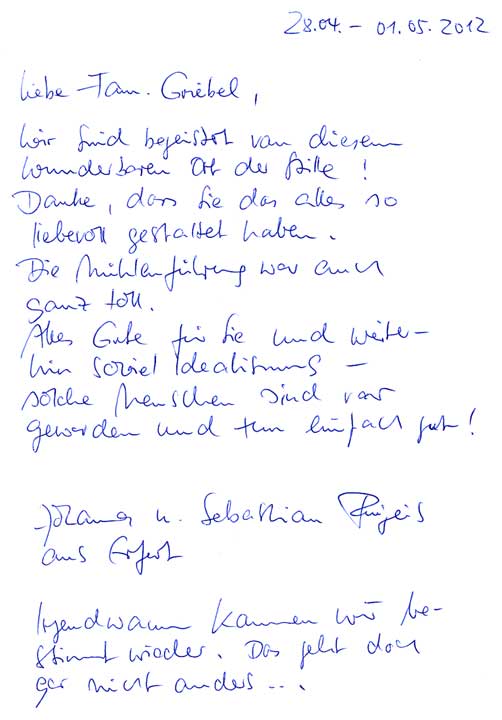 28.04. – 01.05.2012
Liebe Fam. Griebel,
wir sind begeistert von diesem
wunderbaren Ort der Stille!
Danke, dass Sie das alles so
liebevoll gestaltet haben.
Die Mühlenführung war auch
ganz toll.
Alles Gute für Sie und weiter-
hin soviel Idealismus –
solche Menschen sind rar
geworden und tun einfach gut!
u. Sebastian
aus Erfurt
Irgendwann kommen wir be-
stimmt wieder. Das geht doch
gar nicht anders ...